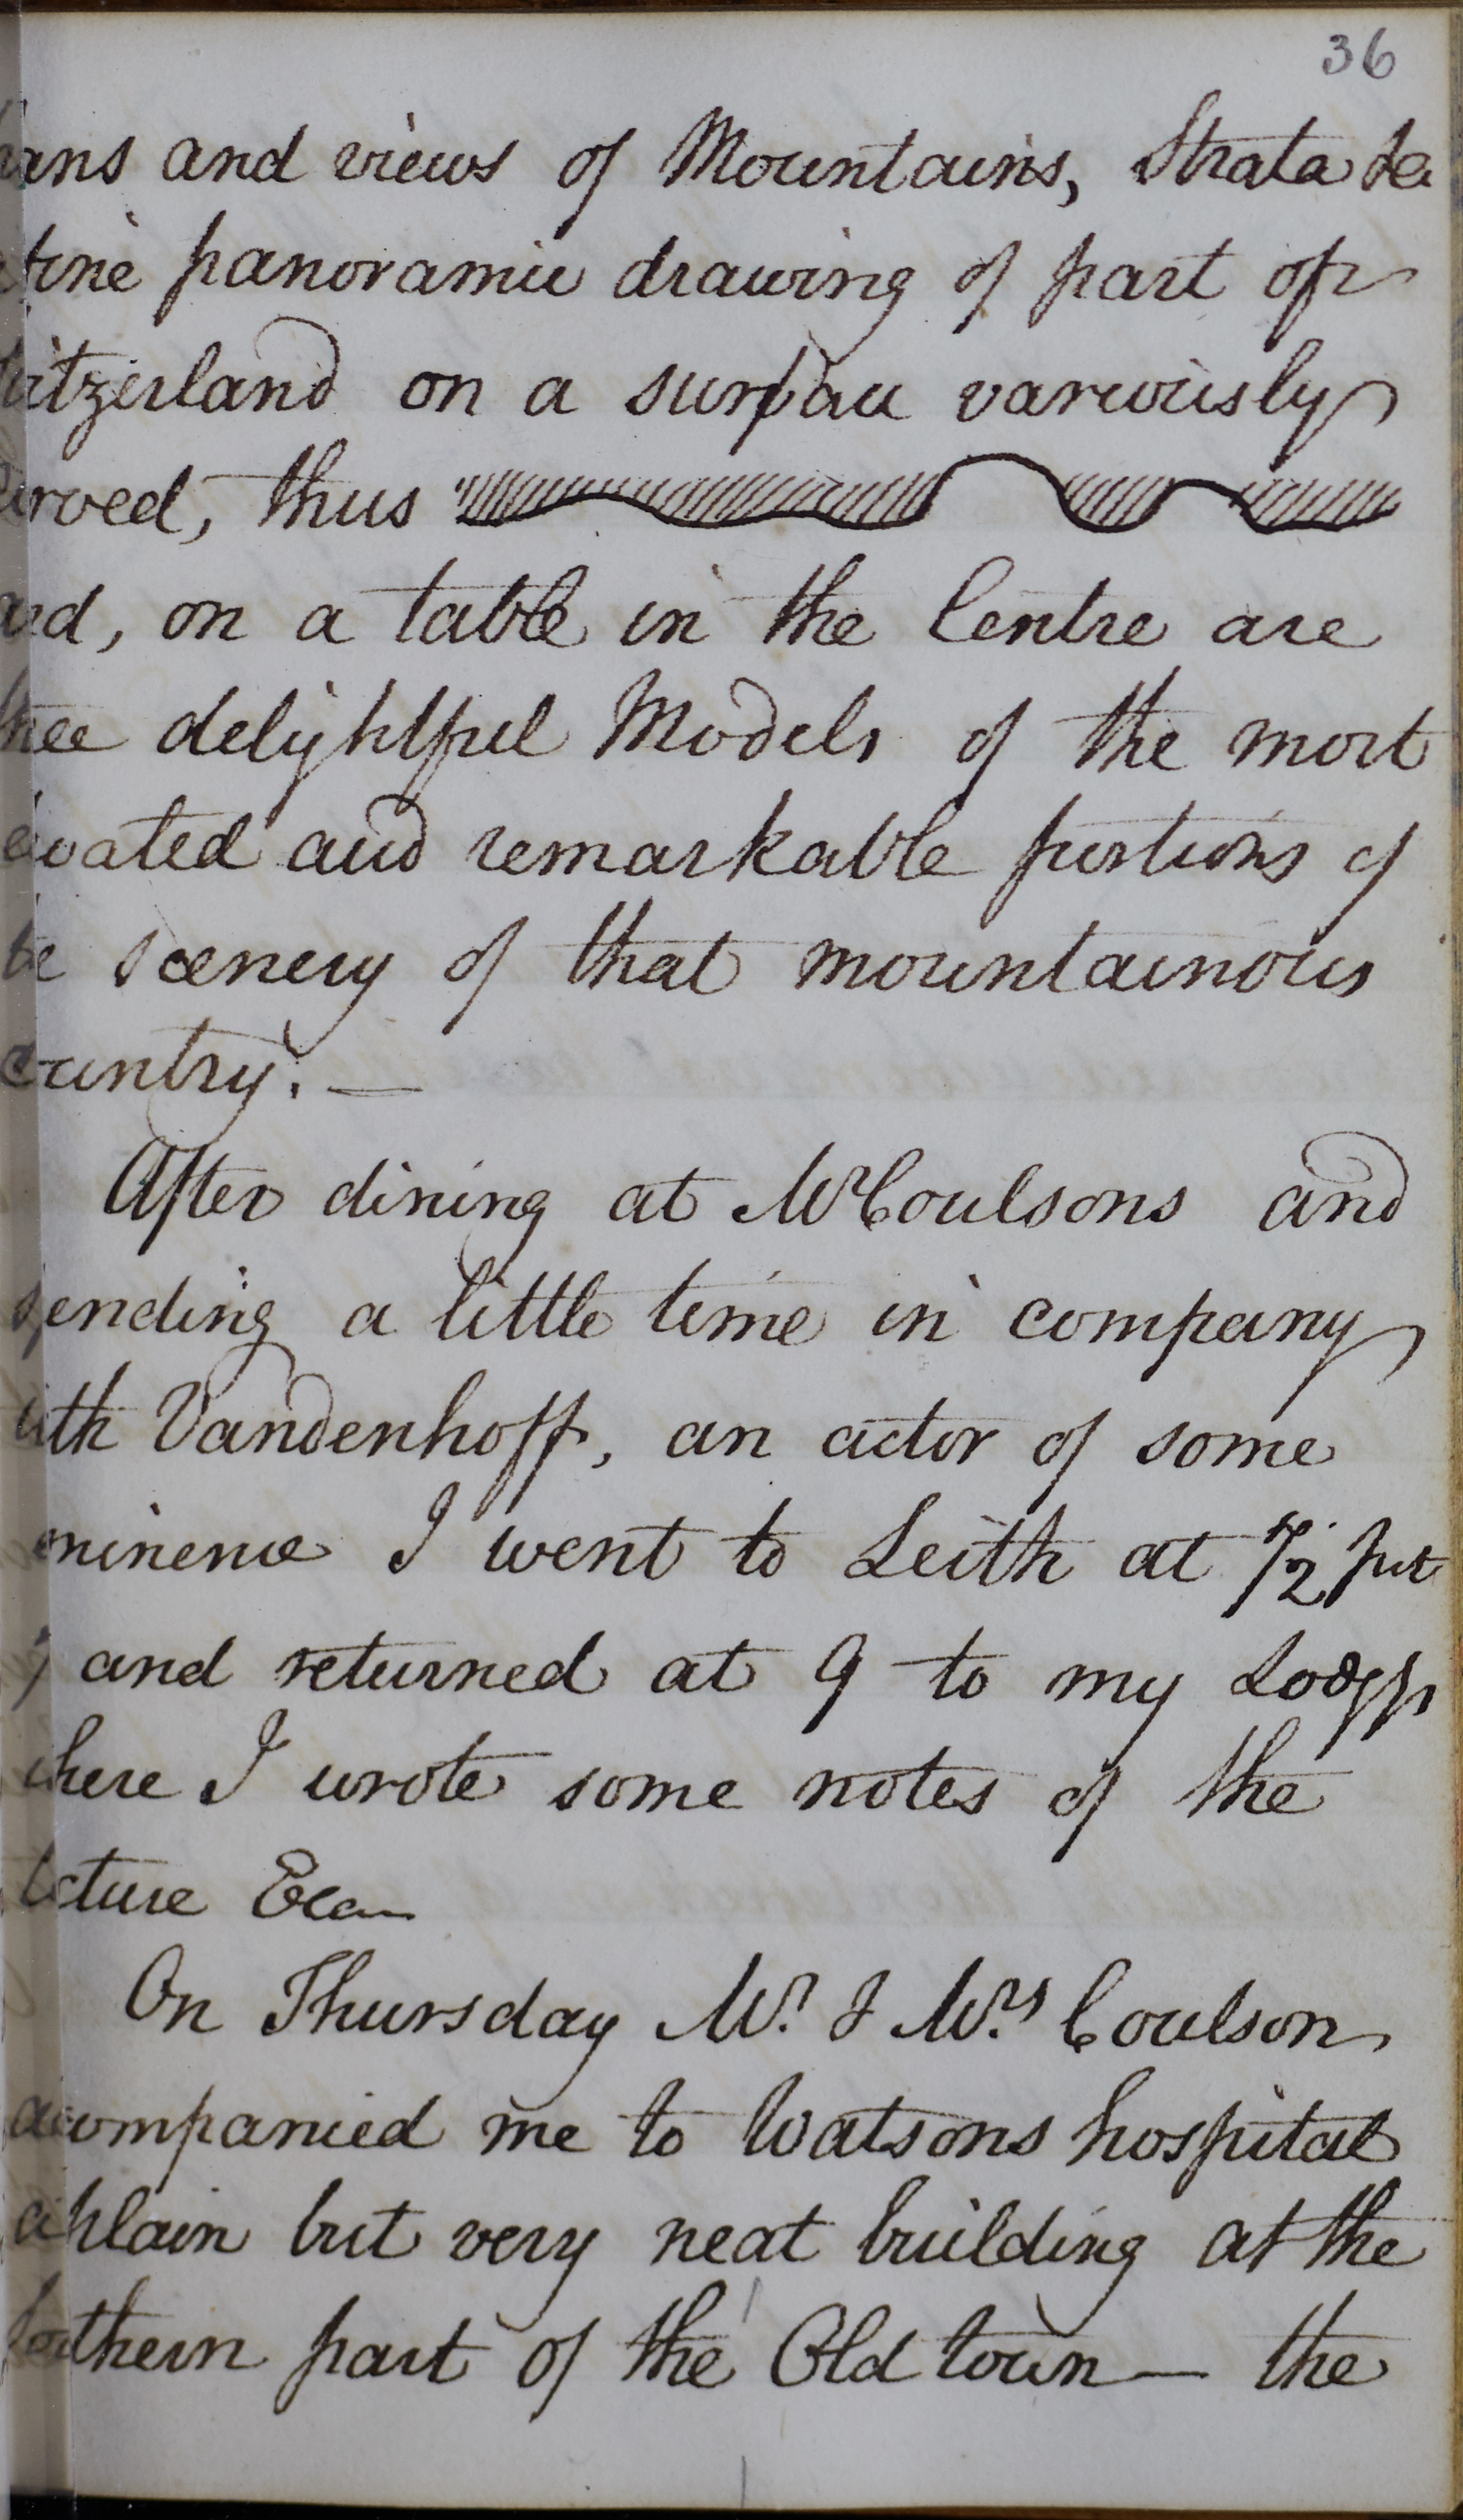 36
ans and views of Mountains, Strata &c
fine panoramic drawing of part of
itzerland on a surface variously
urved, thus
and, on a table in the Centre are
three delightful Models of the most
elevated and remarkable portions of
the scenery of that mountainous
country. —
After dining at Mr Coulsons and
spending a little time in company
with Vandenhoff, an actor of some
eminence I went to Leith at 1/2 pst
7 and returned at 9 to my Lodggs
where I wrote some notes of the
lecture
On Thursday Mr. & Mrs. Coulson
accompanied me to Watsons hospital
a plain but very neat building at the
Southern part of the Old town — the